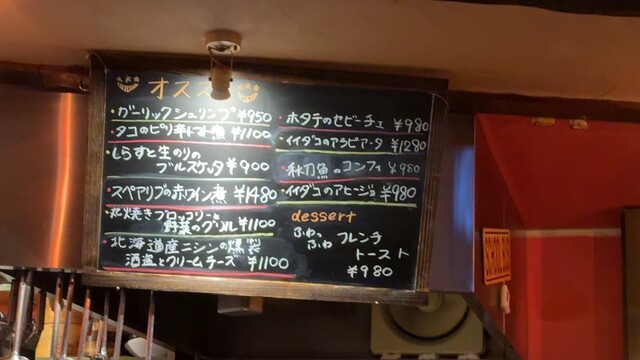 オスス
・ガーリックシュリンプ ¥950
・タコのピリ辛トマト煮 ¥1100
・しらすと生のりの
ブルスケッタ ¥900
・スペアリブの赤ワイン煮 ¥1480
・丸焼きブロッコリーと
野菜のグリル ¥1100
・北海道産ニシンの燻製
酒盗とクリームチーズ ¥1100
・ホタテのセビーチェ ¥980
・イイダコのアラビアータ ¥1280
・秋刀魚のコンフィ ¥980
・イイダコのアヒージョ ¥980
dessert
ふわっ
ふわ フレンチ
トースト
¥980